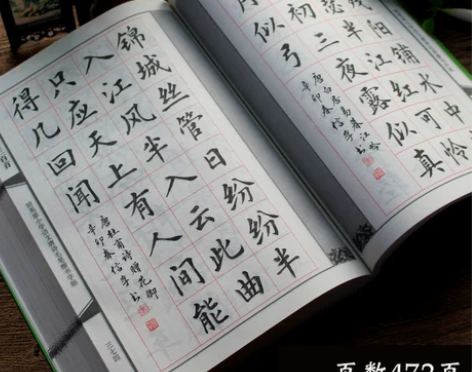 锦城丝管日纷纷半
入江风半入云此曲
只应天上有人间能
得几回闻
唐杜甫诗赠花卿
辛卯春
三七四
阳铺水中
瑟半江红可怜
初三夜露似真
月似弓
唐白居易暮江吟
辛卯春
页数472页